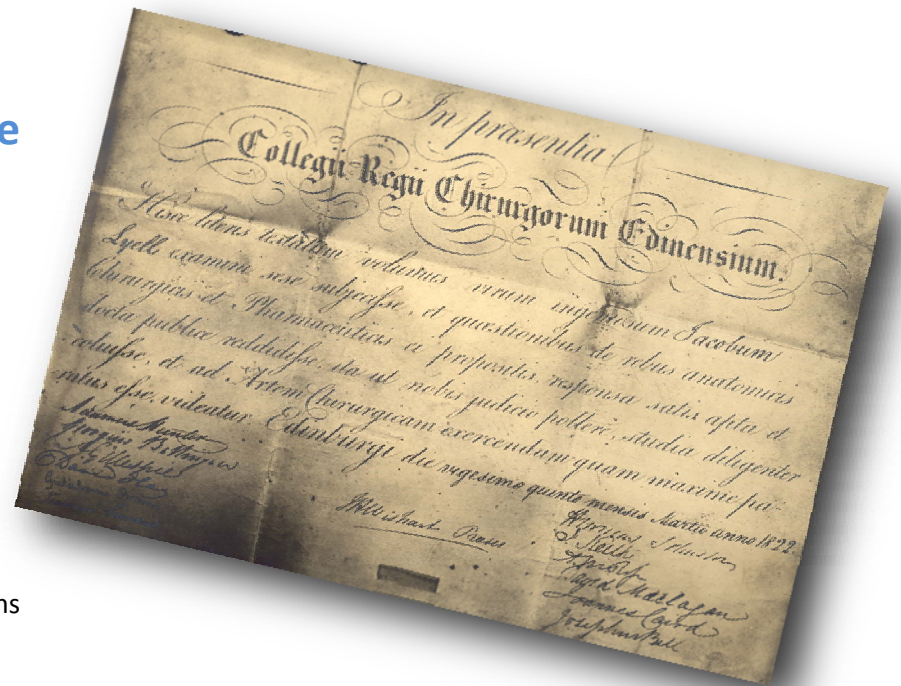 e
In præsentia
Collegii Regii Chirurgorum Edinensium.
Hisce literis testatum volumus virum ingenuum Jacobum
Lyell examini sese subjecisse, et quæstionibus de rebus anatomicis
Chirurgicis et Pharmaceuticis ei propositis, responsa satis apta et
docta publice reddidisse; ita ut nobis judicio pollere, studia diligenter
coluisse, et ad Artem Chirurgicam exercendam quam maxime pa-
ratus esse, videatur. Edinburgi die vigesimo quinto mensis Martii anno 1822.
Wishart Præses
Gillespie
David
Keith
Maclagan
Joannes Caird
Josephus Bell
ns